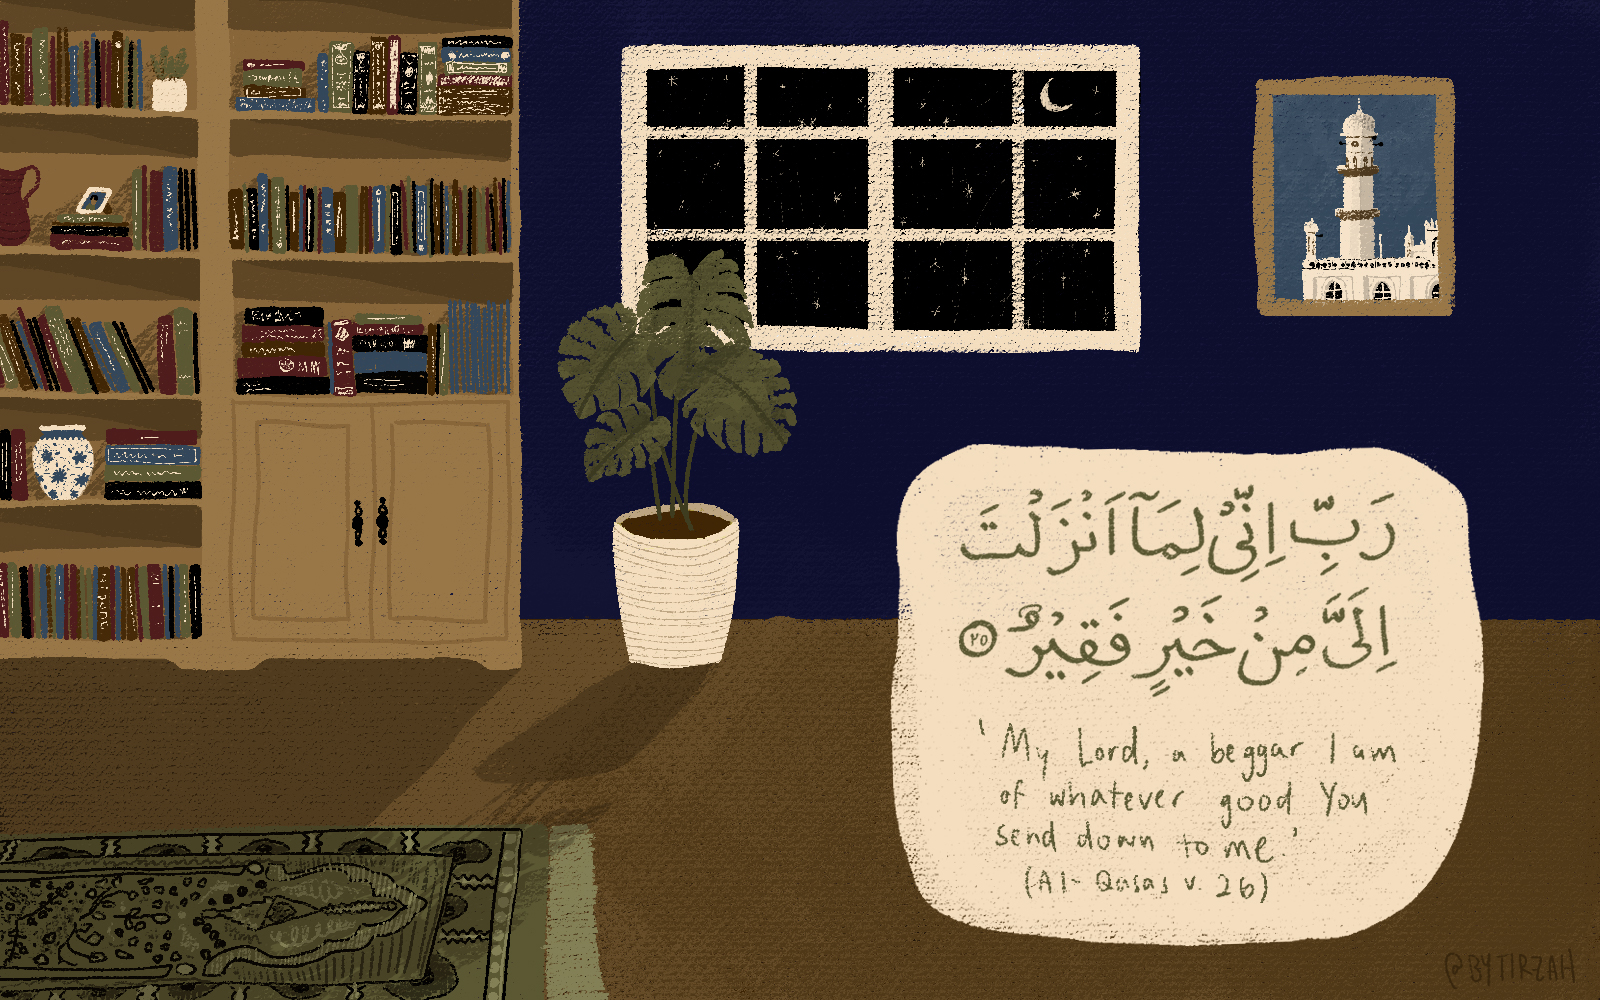 رَبِّ اِنِّیۡ لِمَاۤ اَنۡزَلۡتَ
اِلَیَّ مِنۡ خَیۡرٍ فَقِیۡرٌ ﴿۲۵﴾
'My Lord, a beggar I am
of whatever good You
send down to me.'
(Al-Qasas v. 26)
@BYTIRZAH